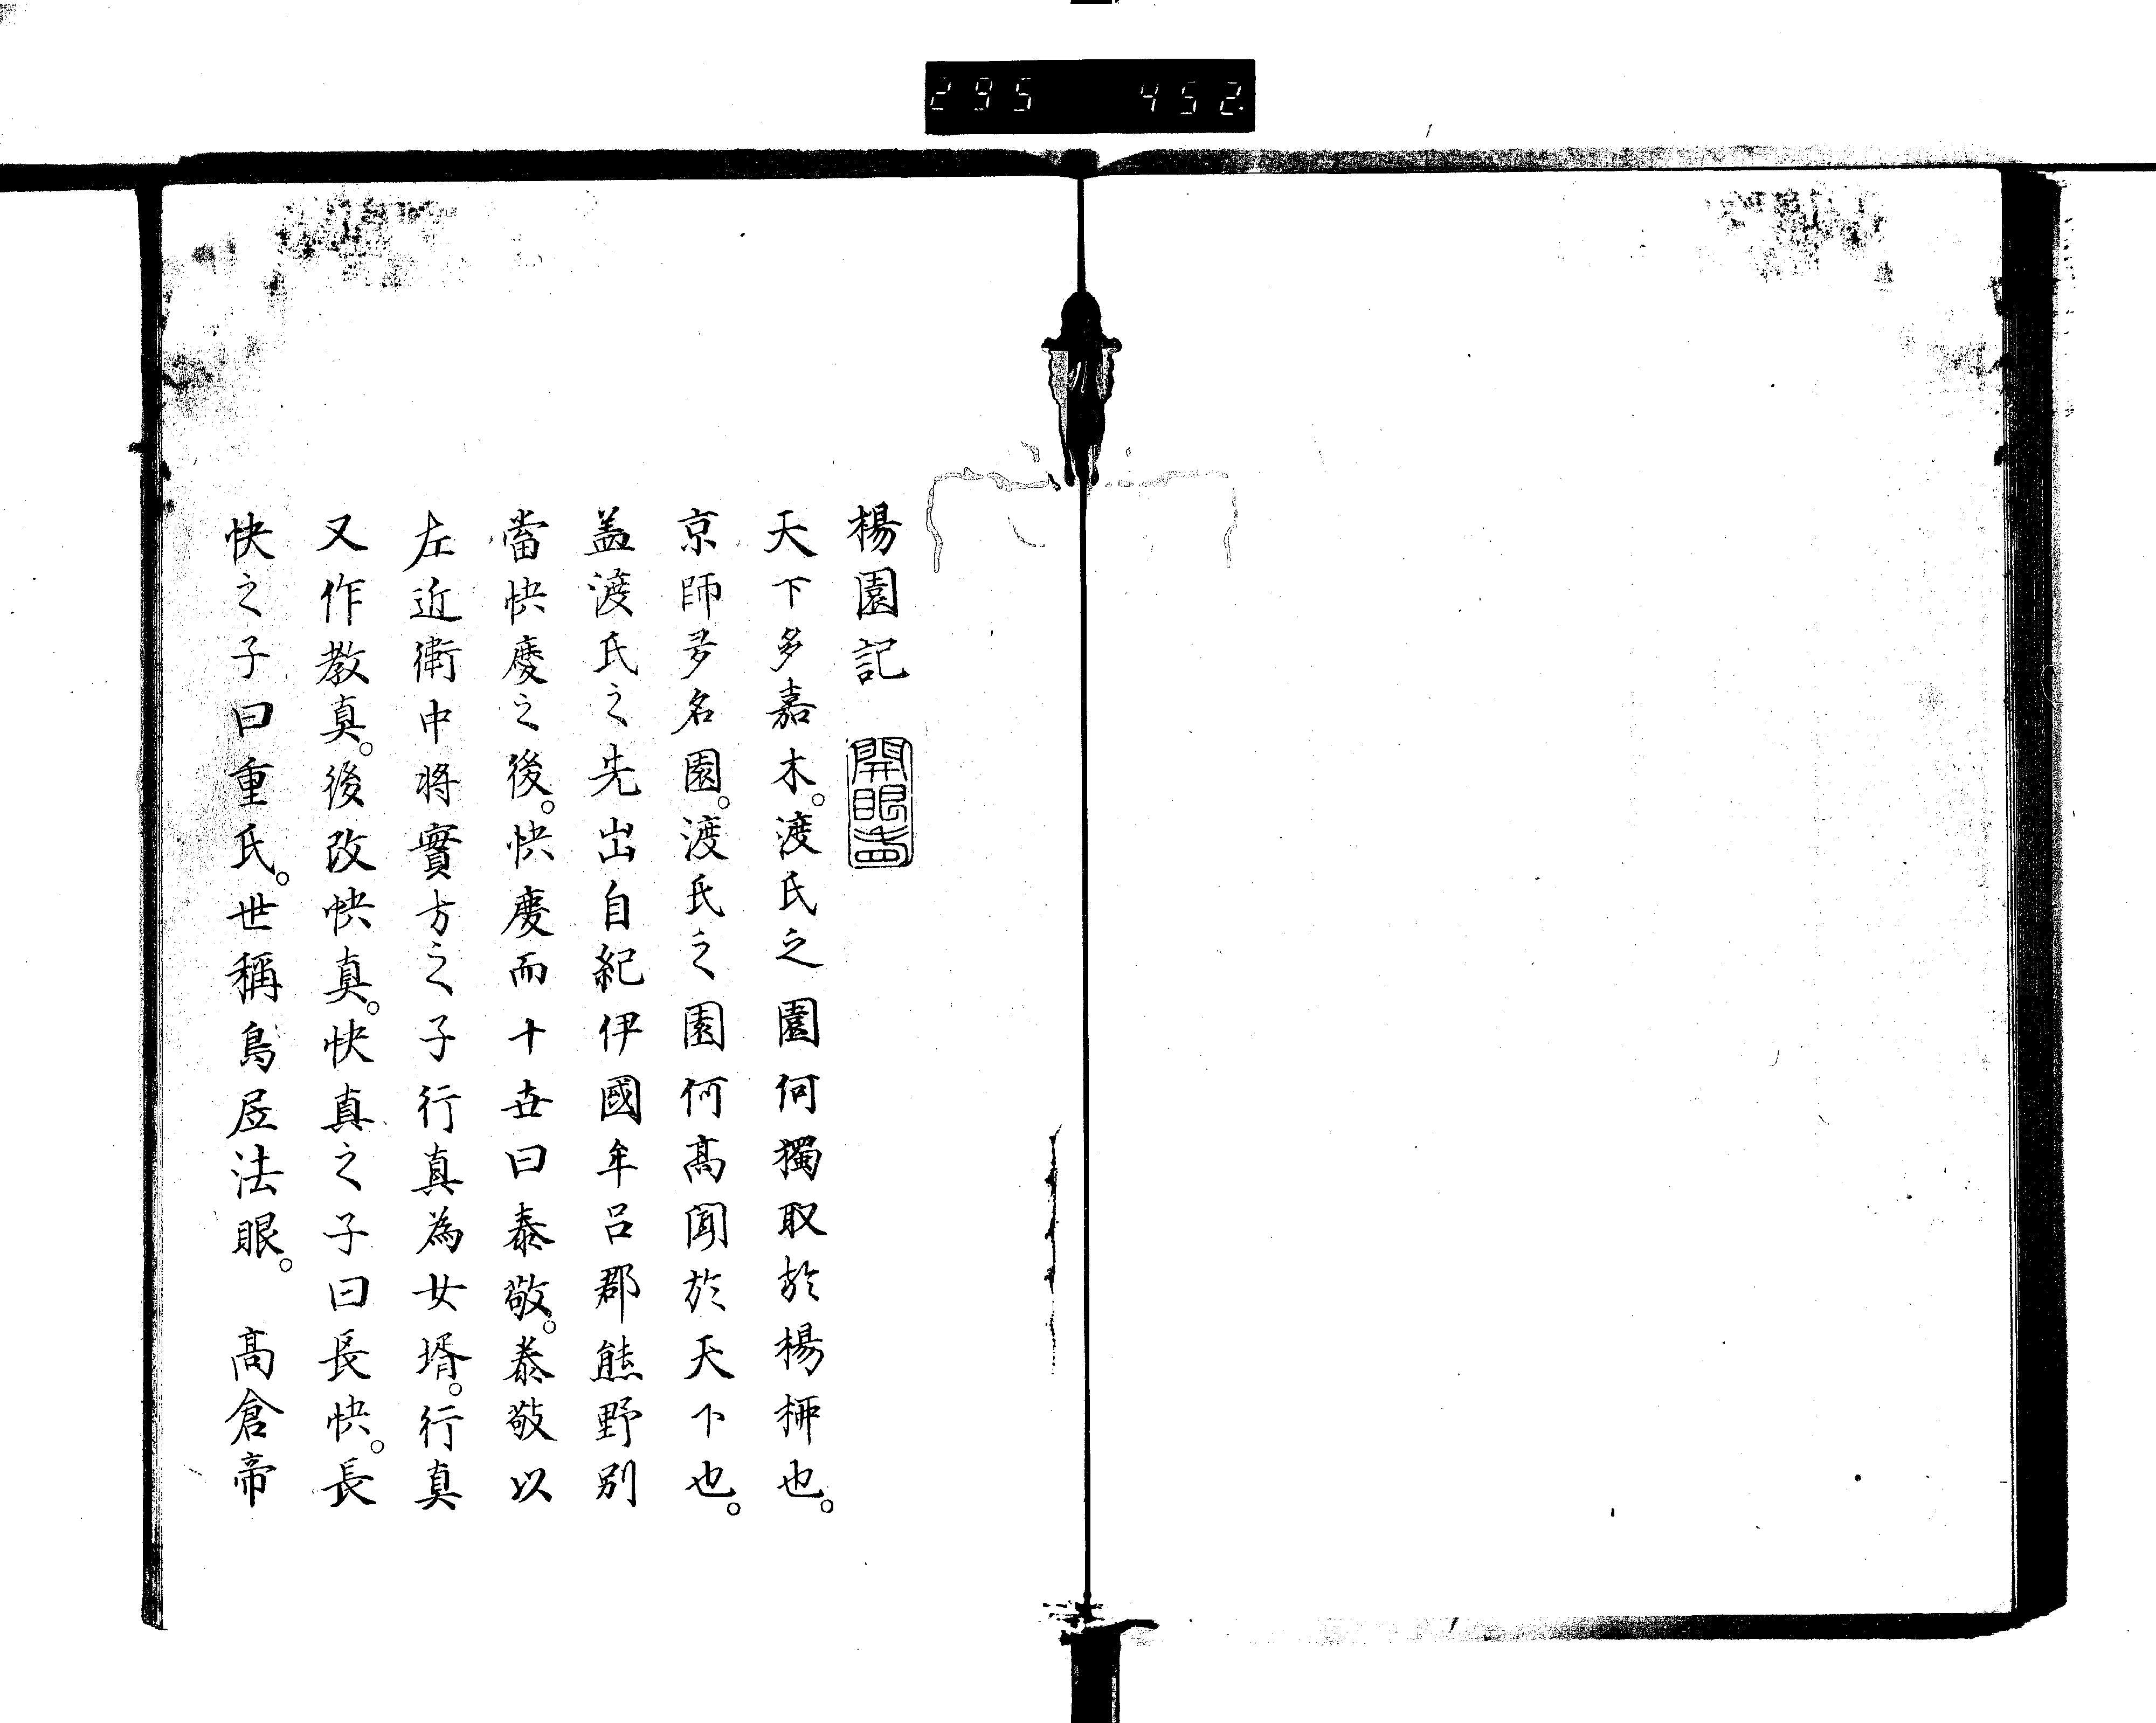 295 452
楊園記
開眼
天下多嘉木。渡氏之園何獨取於楊桺也。
京師多名園。渡氏之園何髙聞於天下也。
盖渡氏之先出自紀伊國牟吕郡熊野別
當快慶之後。快慶而十世曰泰敬。泰敬以
左近衛中将實方之子行真為女壻。行真
又作教真。後改快真。快真之子曰長快。長
快之子曰重氏。世稱鳥居法眼。 髙倉帝